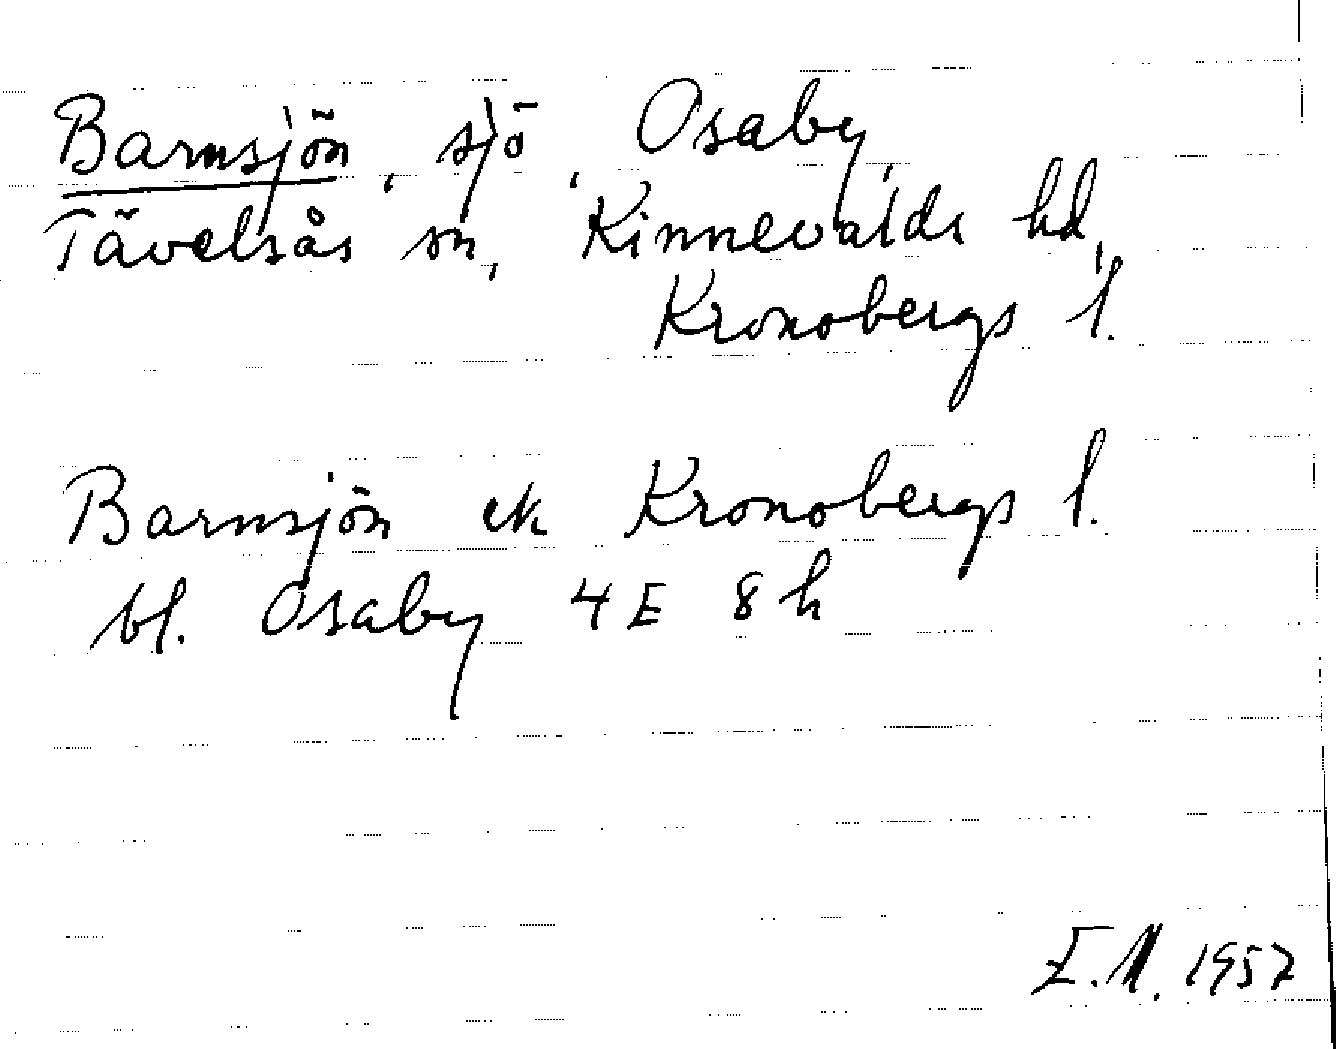 Barnsjön, sjö, Osaby,
Tävelsås sn, Kinnevalds hd,
Kronobergs l.
Barnsjön ek Kronobergs l.
bl. Osaby 4E 8h
E.N. 1957